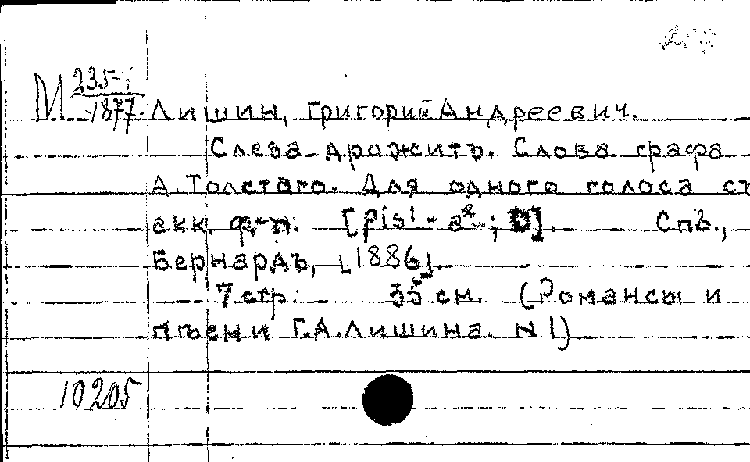 М 235-i/1877
Лишин, Григорий Андреевич.
Слеза дрожитъ. Слова графа
А. Толстаго. Для одного голоса съ
акк. ф-п. [fis¹-a²; D]. Спб.,
Бернардъ, [1886].
7 стр. 35 см. (Романсы и
пѣсни Г.А. Лишина. N 1)
10205